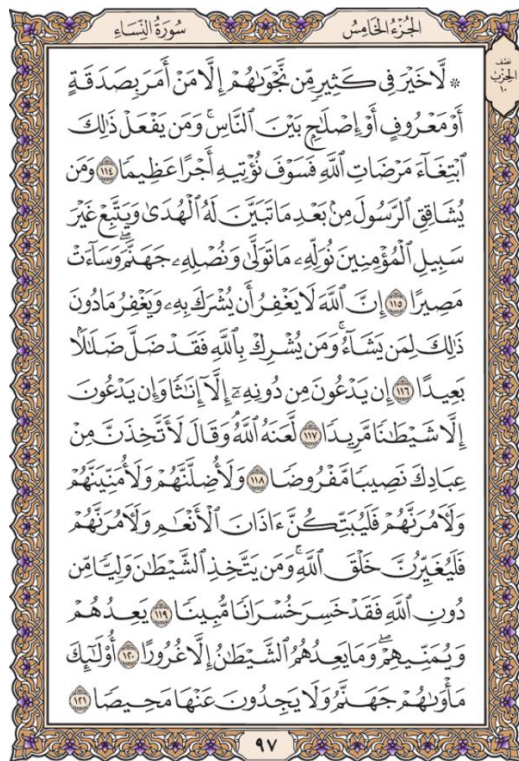 سُورَةُ النِّسَاءِ
الجُزْءُ الخَامِسُ
نصف
الحِزْب
١٠
۞ لَّا خَيْرَ فِي كَثِيرٍ مِّن نَّجْوَىٰهُمْ إِلَّا مَنْ أَمَرَ بِصَدَقَةٍ
أَوْ مَعْرُوفٍ أَوْ إِصْلَٰحٍۭ بَيْنَ ٱلنَّاسِۚ وَمَن يَفْعَلْ ذَٰلِكَ
ٱبْتِغَآءَ مَرْضَاتِ ٱللَّهِ فَسَوْفَ نُؤْتِيهِ أَجْرًا عَظِيمًا ١١٤ وَمَن
يُشَاقِقِ ٱلرَّسُولَ مِنۢ بَعْدِ مَا تَبَيَّنَ لَهُ ٱلْهُدَىٰ وَيَتَّبِعْ غَيْرَ
سَبِيلِ ٱلْمُؤْمِنِينَ نُوَلِّهِۦ مَا تَوَلَّىٰ وَنُصْلِهِۦ جَهَنَّمَۖ وَسَآءَتْ
مَصِيرًا ١١٥ إِنَّ ٱللَّهَ لَا يَغْفِرُ أَن يُشْرَكَ بِهِۦ وَيَغْفِرُ مَا دُونَ
ذَٰلِكَ لِمَن يَشَآءُۚ وَمَن يُشْرِكْ بِٱللَّهِ فَقَدْ ضَلَّ ضَلَٰلًۢا
بَعِيدًا ١١٦ إِن يَدْعُونَ مِن دُونِهِۦٓ إِلَّآ إِنَٰثًا وَإِن يَدْعُونَ
إِلَّا شَيْطَٰنًا مَّرِيدًا ١١٧ لَّعَنَهُ ٱللَّهُۘ وَقَالَ لَأَتَّخِذَنَّ مِنْ
عِبَادِكَ نَصِيبًا مَّفْرُوضًا ١١٨ وَلَأُضِلَّنَّهُمْ وَلَأُمَنِّيَنَّهُمْ
وَلَءَامُرَنَّهُمْ فَلَيُبَتِّكُنَّ ءَاذَانَ ٱلْأَنْعَٰمِ وَلَءَامُرَنَّهُمْ
فَلَيُغَيِّرُنَّ خَلْقَ ٱللَّهِۚ وَمَن يَتَّخِذِ ٱلشَّيْطَٰنَ وَلِيًّا مِّن
دُونِ ٱللَّهِ فَقَدْ خَسِرَ خُسْرَانًا مُّبِينًا ١١٩ يَعِدُهُمْ
وَيُمَنِّيهِمْۖ وَمَا يَعِدُهُمُ ٱلشَّيْطَٰنُ إِلَّا غُرُورًا ١٢٠ أُو۟لَٰٓئِكَ
مَأْوَىٰهُمْ جَهَنَّمُ وَلَا يَجِدُونَ عَنْهَا مَحِيصًا ١٢١
٩٧